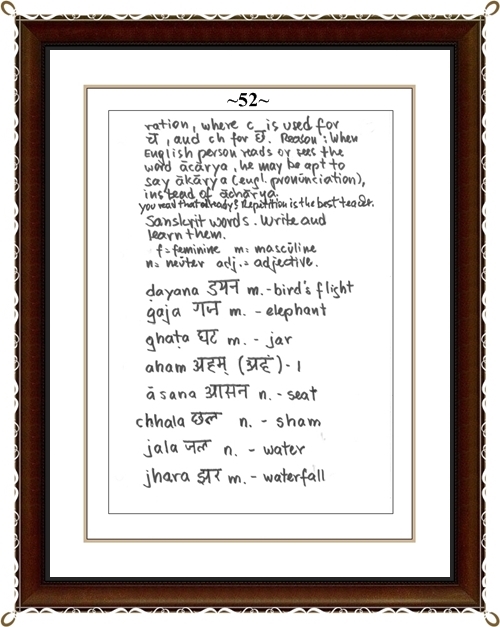 ~52~
ration, where c is used for
च, and ch for छ. Reason: When
English person reads or sees the
word ācārya, he may be apt to
say ākārya (engl. pronunciation),
instead of āchārya.
you read that already? Repetition is the best teacher.
Sanskrit words. Write and
learn them.
f = feminine m = masculine
n = neuter adj. = adjective.
ḍayana डयन m. - bird's flight
gaja गज m. - elephant
ghaṭa घट m. - jar
aham अहम् (अहं) - I
āsana आसन n. - seat
chhala छल n. - sham
jala जल n. - water
jhara झर m. - waterfall